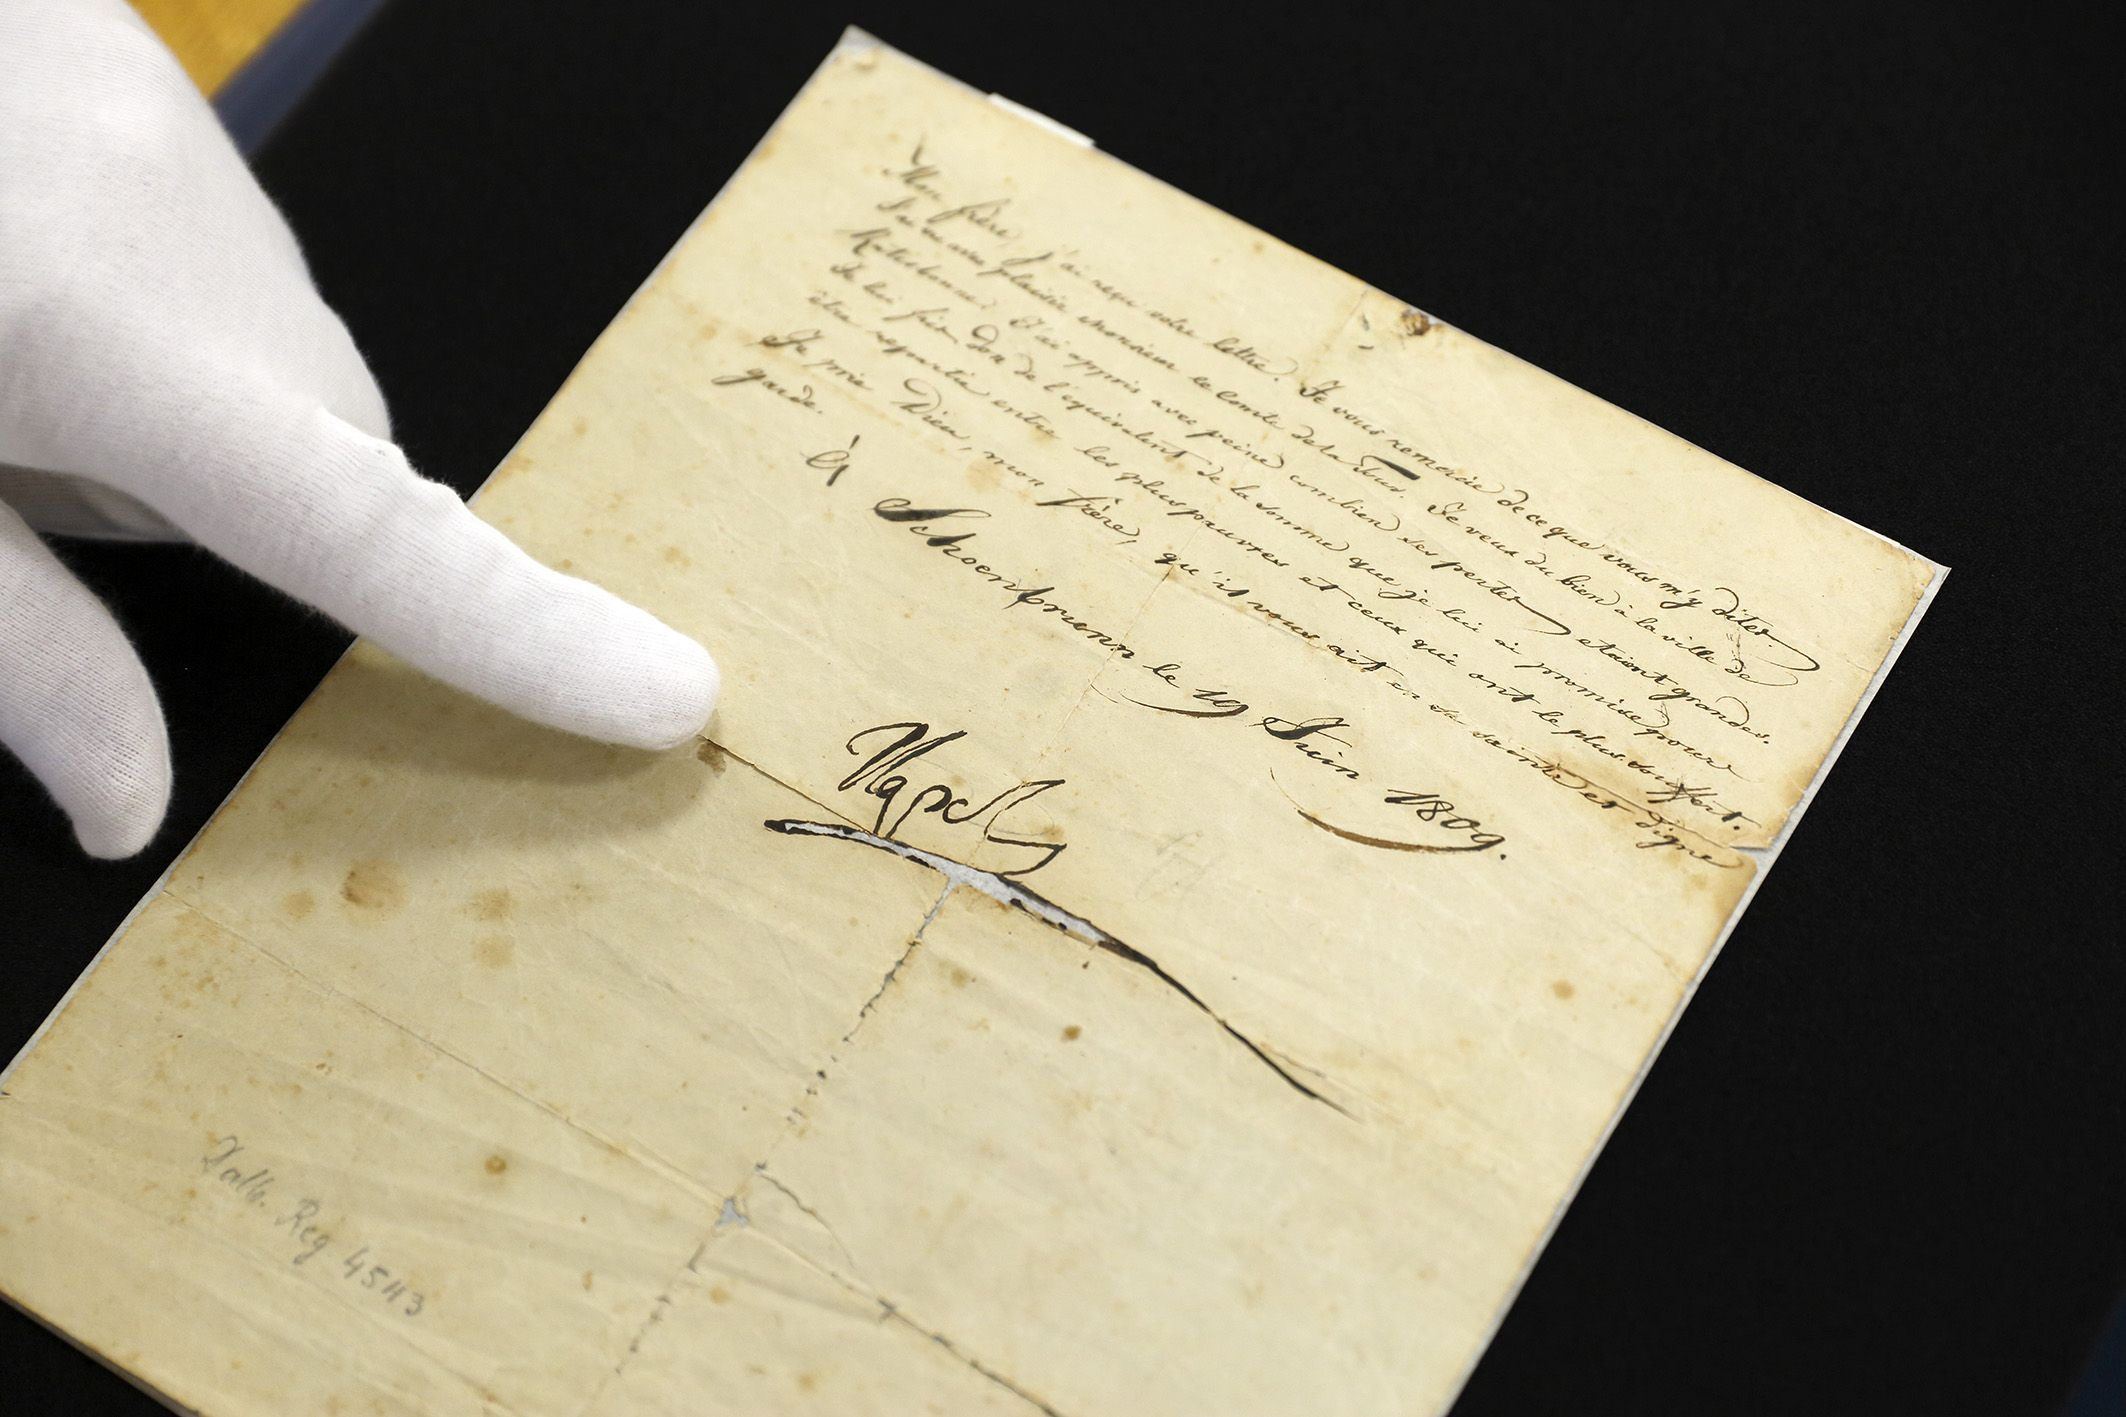 Mon frère, j'ai reçu votre lettre. Je vous remercie de ce que vous m'y dites.
J'ai vu avec plaisir monsieur le Comte de la Je veux du bien à la ville de
Ratisbonne. J'ai appris avec peine combien ses pertes etaient grandes.
Je lui fais don de l'équivalent de la somme que je lui ai promise pour
être repartie entre les plus pauvres et ceux qui ont le plus souffert.
Je prie Dieu, mon frère, qu'il vous ait en sa sainte et digne
garde.
à Schoenbrunn le 19 Juin 1809.
Napol
Dalb. Reg 45113